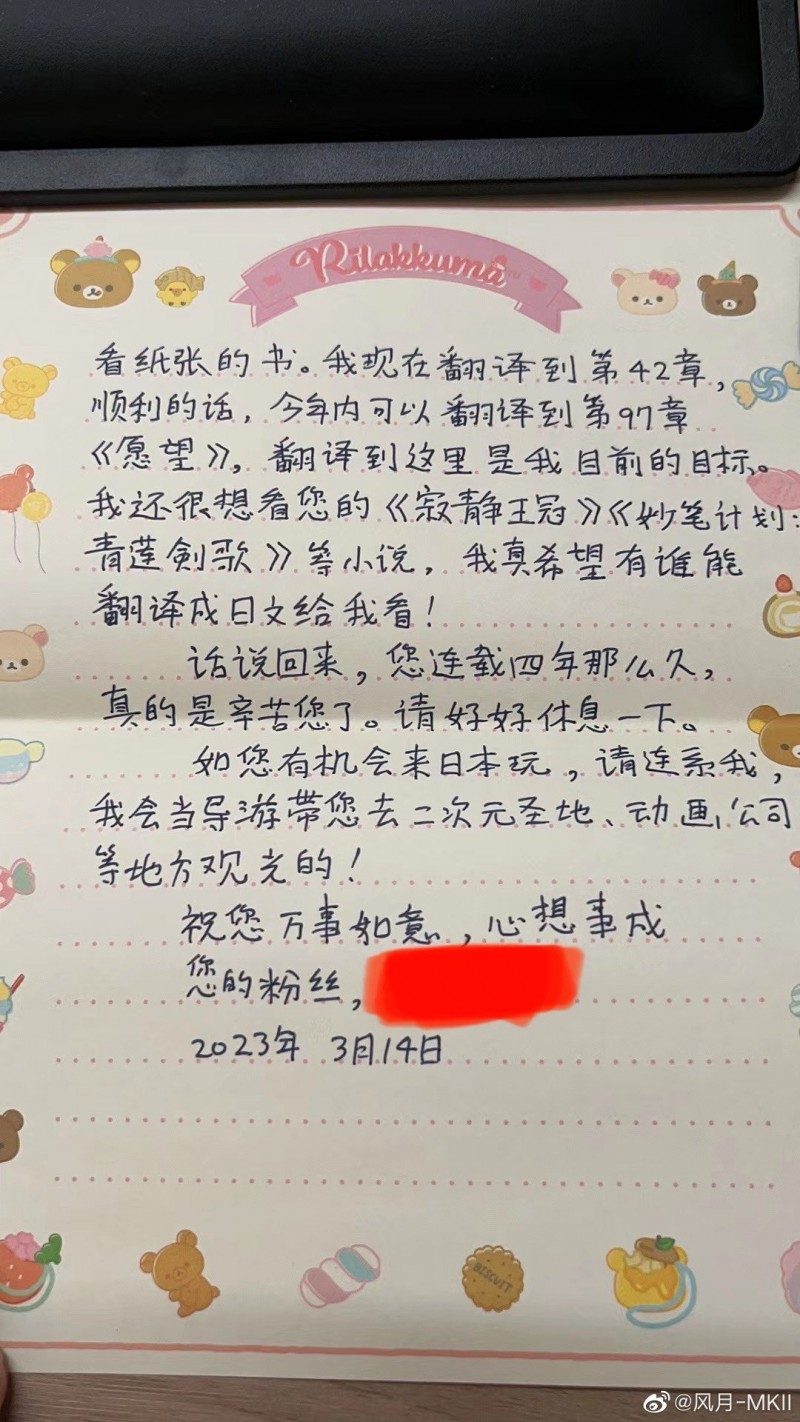 Rilakkuma
看纸张的书。我现在翻译到第42章，
顺利的话，今年内可以翻译到第97章
《愿望》，翻译到这里是我目前的目标。
我还很想看您的《寂静王冠》《妙笔计划：
青莲剣歌》等小说，我真希望有谁能
翻译成日文给我看！
话说回来，您连载四年那么久，
真的是辛苦您了。请好好休息一下。
如您有机会来日本玩，请连系我，
我会当导游带您去二次元圣地、动画公司
等地方观光的！
祝您万事如意，心想事成
您的粉丝，
2023年 3月14日
BISCUIT
@风月-MKII